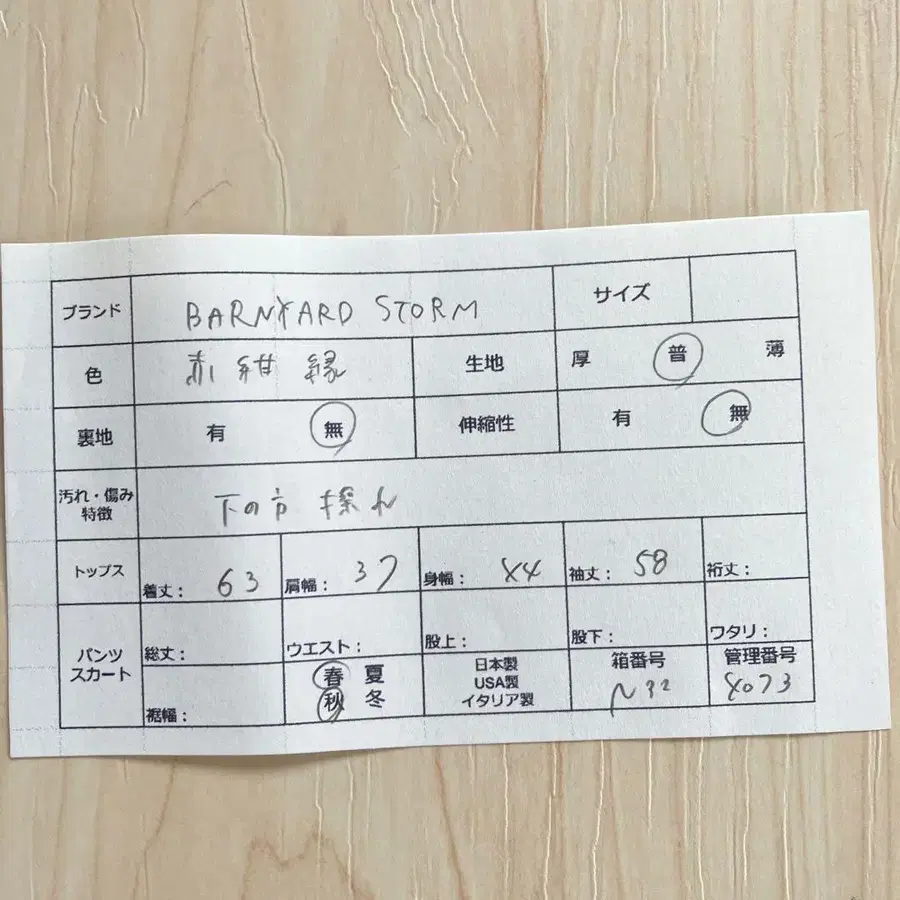 ブランド BARNYARD STORM サイズ
色 赤 紺 緑 生地 厚 普 薄
裏地 有 無 伸縮性 有 無
汚れ・傷み
特徴 下の方 擦れ
トップス 着丈: 63 肩幅: 37 身幅: 44 袖丈: 58 裄丈:
パンツ
スカート 総丈: ウエスト: 股上: 股下: ワタリ:
裾幅: 春 夏
秋 冬
日本製
USA製
イタリア製
箱番号
N32
管理番号
4073